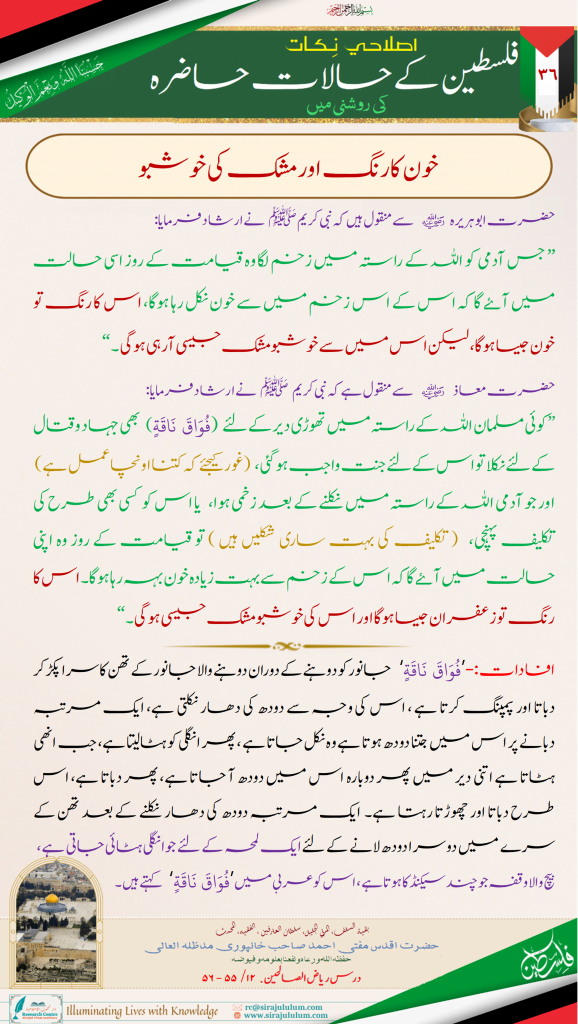 بسم اللہ الرحمن الرحیم
حَسْبُنَا اللّٰهُ وَنِعْمَ الْوَكِيْل
اصلاحي نِكات
فلسطین کے حالات حاضرہ
کی روشنی میں
۳۶
خون کا رنگ اور مشک کی خوشبو
حضرت ابوہریرہ رضی اللہ عنہ سے منقول ہیں کہ نبی کریم ﷺ نے ارشاد فرمایا:
”جس آدمی کو اللہ کے راستہ میں زخم لگا وہ قیامت کے روز اسی حالت
میں آئے گا کہ اس کے اس زخم میں سے خون نکل رہا ہوگا، اس کا رنگ تو
خون جیسا ہوگا، لیکن اس میں سے خوشبو مشک جیسی آرہی ہوگی۔“
حضرت معاذ رضی اللہ عنہ سے منقول ہے کہ نبی کریم ﷺ نے ارشاد فرمایا:
”کوئی مسلمان اللہ کے راستہ میں تھوڑی دیر کے لئے (فُوَاقَ نَاقَةٍ) بھی جہاد و قتال
کے لئے نکلا تو اس کے لئے جنت واجب ہوگئی، (غور کیجئے کہ کتنا اونچا عمل ہے)
اور جو آدمی اللہ کے راستہ میں نکلنے کے بعد زخمی ہوا، یا اس کو کسی بھی طرح کی
تکلیف پہنچی، (تکلیف کی بہت ساری شکلیں ہیں) تو قیامت کے روز وہ اپنی
حالت میں آئے گا کہ اس کے زخم سے بہت زیادہ خون بہہ رہا ہوگا۔ اس کا
رنگ تو زعفران جیسا ہوگا اور اس کی خوشبو مشک جیسی ہوگی۔“
افادات:- ’فُوَاقَ نَاقَةٍ‘ جانور کو دوہنے کے دوران دوہنے والا جانور کے تھن کا سرا پکڑ کر
دباتا اور پمپنگ کرتا ہے، اس کی وجہ سے دودھ کی دھار نکلتی ہے، ایک مرتبہ
دبانے پر اس میں جتنا دودھ ہوتا ہے وہ نکل جاتا ہے، پھر انگلی کو ہٹا لیتا ہے، جب انھی
ہٹاتا ہے اتنی دیر میں پھر دوبارہ اس میں دودھ آ جاتا ہے، پھر دباتا ہے، اس
طرح دباتا اور چھوڑتا رہتا ہے۔ ایک مرتبہ دودھ کی دھار نکلنے کے بعد تھن کے
سرے میں دوسرا دودھ لانے کے لئے ایک لمحہ کے لئے جو انگلی ہٹائی جاتی ہے،
بیچ والا وقفہ جو چند سیکنڈ کا ہوتا ہے، اس کو عربی میں ’فُوَاقَ نَاقَةٍ‘ کہتے ہیں۔
بقیة السلف، سلطان العارفین، الفقیہ، المحدث
حضرت اقدس مفتی احمد صاحب خانپوری مدظلہ العالی
حفظه الله ورعاه ونفعنا بعلومه وفيوضه
درس ریاض الصالحین. ۱۲/ ۵۵-۵۶
فلسطین
Research Centre
Illuminating Lives with Knowledge
rc@sirajululum.com
www.sirajululum.com